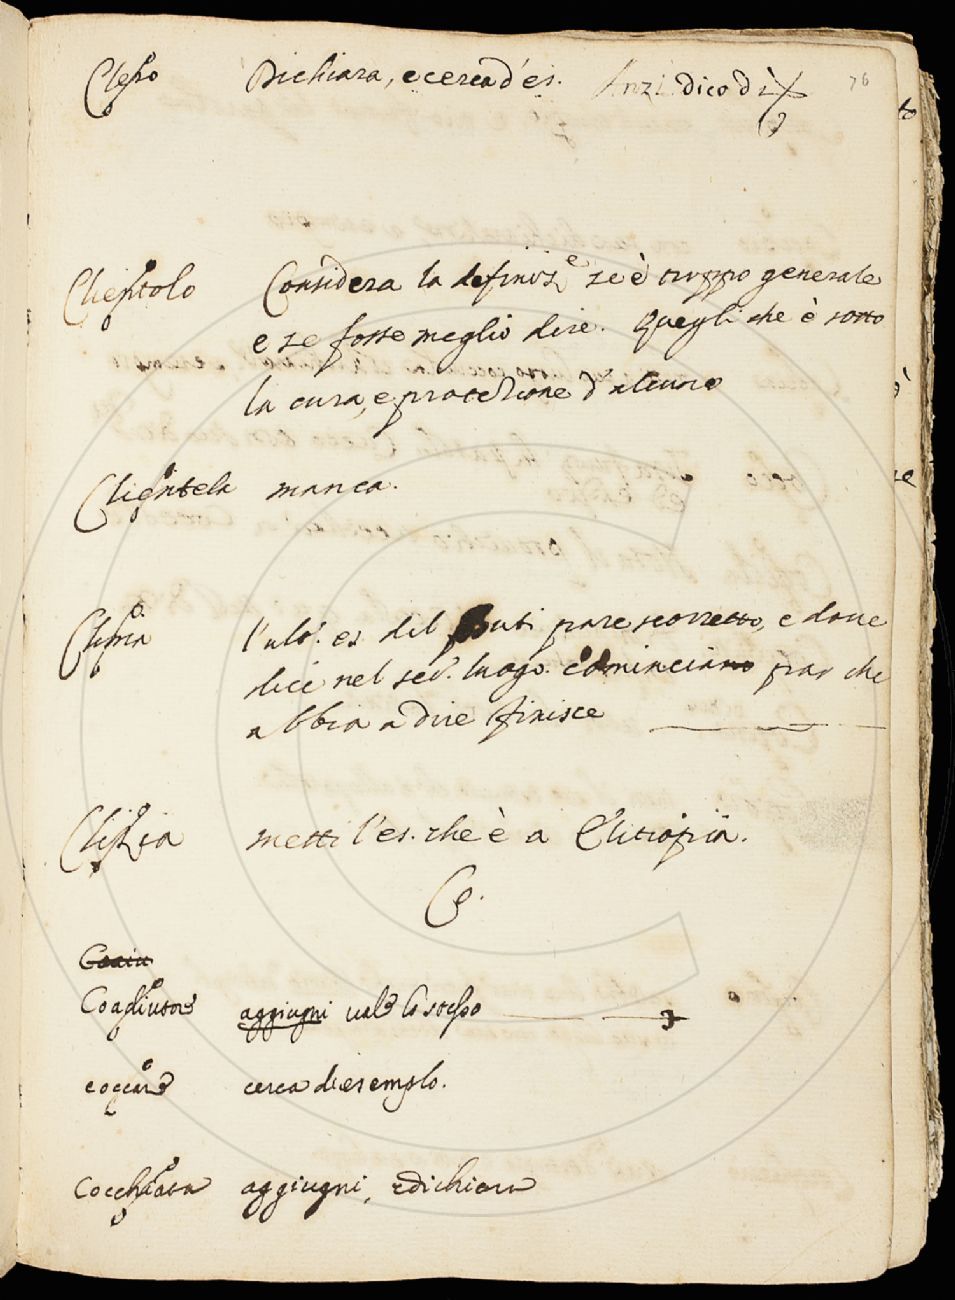 Clesso Dichiara, e cerca d'es. Anzi dico di 76
Clientolo Considera la definiz.e se è troppo generale
e se fosse meglio dire. Quegli che è sotto
la cura, e protezione d'alcuno
Clientela manca.
Clima l'ult.o es. del Buti pare scorretto, e doue
dice nel sec.o luogo cominciano par che
abbia a dire finisce
Clizia metti l'es. che è a Elitropia.
Co.
Coagiutore aggiugni uale lo stesso
coccare cerca di esemplo.
Cocchiata aggiugni, e dichiara